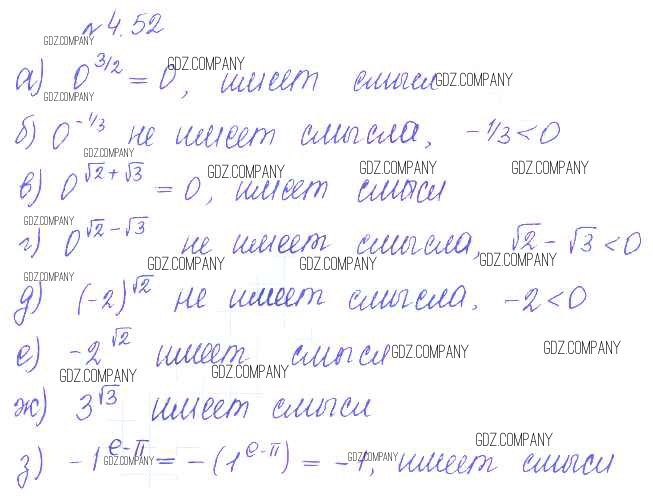 № 4.52
GDZ.COMPANY
а) 0^{3/2} = 0, имеет смысл
GDZ.COMPANY GDZ.COMPANY
GDZ.COMPANY
б) 0^{-1/3} не имеет смысла, -1/3 < 0
GDZ.COMPANY GDZ.COMPANY GDZ.COMPANY GDZ.COMPANY
в) 0^{√2+√3} = 0, имеет смысл
GDZ.COMPANY
г) 0^{√2-√3} не имеет смысла, √2 - √3 < 0
GDZ.COMPANY GDZ.COMPANY GDZ.COMPANY
GDZ.COMPANY
д) (-2)^{√2} не имеет смысла. -2 < 0
е) -2^{√2} имеет смысл
GDZ.COMPANY GDZ.COMPANY
GDZ.COMPANY GDZ.COMPANY
ж) 3^{√3} имеет смысл
GDZ.COMPANY
з) -1^{e-π} = -(1^{e-π}) = -1, имеет смысл
GDZ.COMPANY GDZ.COMPANY